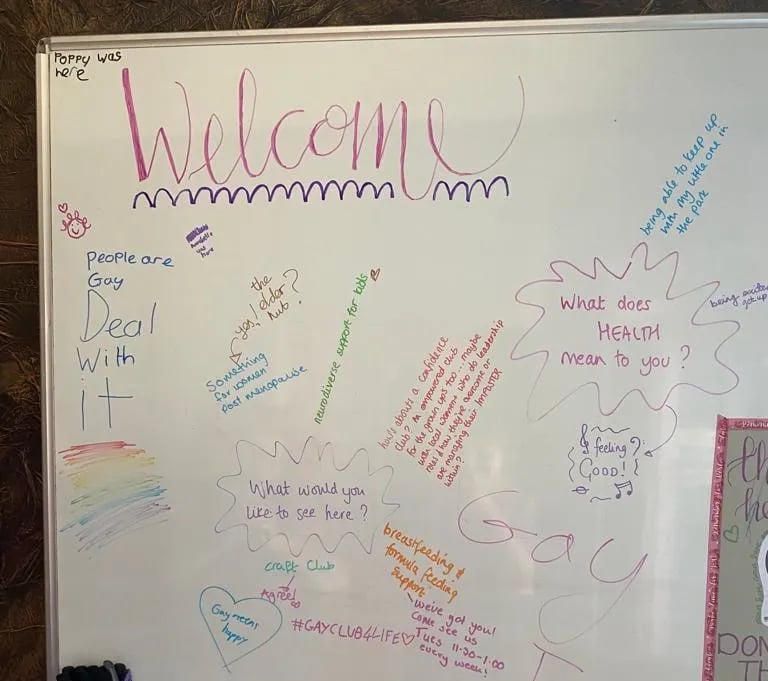 Poppy was
here
Welcome
being able to keep up
with my little one in
the park
was here
People are
Gay
Deal
With
it
the
yes! elder
hub?
Something
for women
post menopause
neurodiverse support for kids
how about a confidence
club? An empowered club
for the grown ups too... maybe
with local women who do leadership
roles & how they've overcome or
are managing their imposter
within?
What does
HEALTH
mean to you?
being
get up
feeling?
GOOD!
What would you
like to see here?
Gay
craft club
Agree!
breastfeeding &
formula feeding
support
we've got you!
come see us
Tues 11-30-1:00
every week!
Gay means
happy
#GAYCLUB4LIFE
th
he
DON
TH